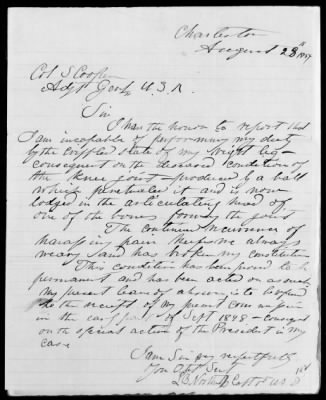 Charleston
August 28th 1857
Col S Cooper
Adjt Genl U.S.A.
Sir
I have the honor to report that
I am incapable of performing my duty
by the crippled state of my right leg –
consequent on the diseased condition of
the knee joint – produced by a ball
which penetrated it and is now
lodged in the articulating head of
one of the bones forming the joint
The continued recurrence of
harassing pain keeps me always
weary, and has broken my constitution
This condition has been proved to be
permanent and has been acted on as such
My present leave of absence is to
the receipt of my present commission
in the early part of Sept 1848 – consequent
on the special action of the President in my
case
I am Sir very respectfully
Your Obt Servt
L B Northrop Capt 1st